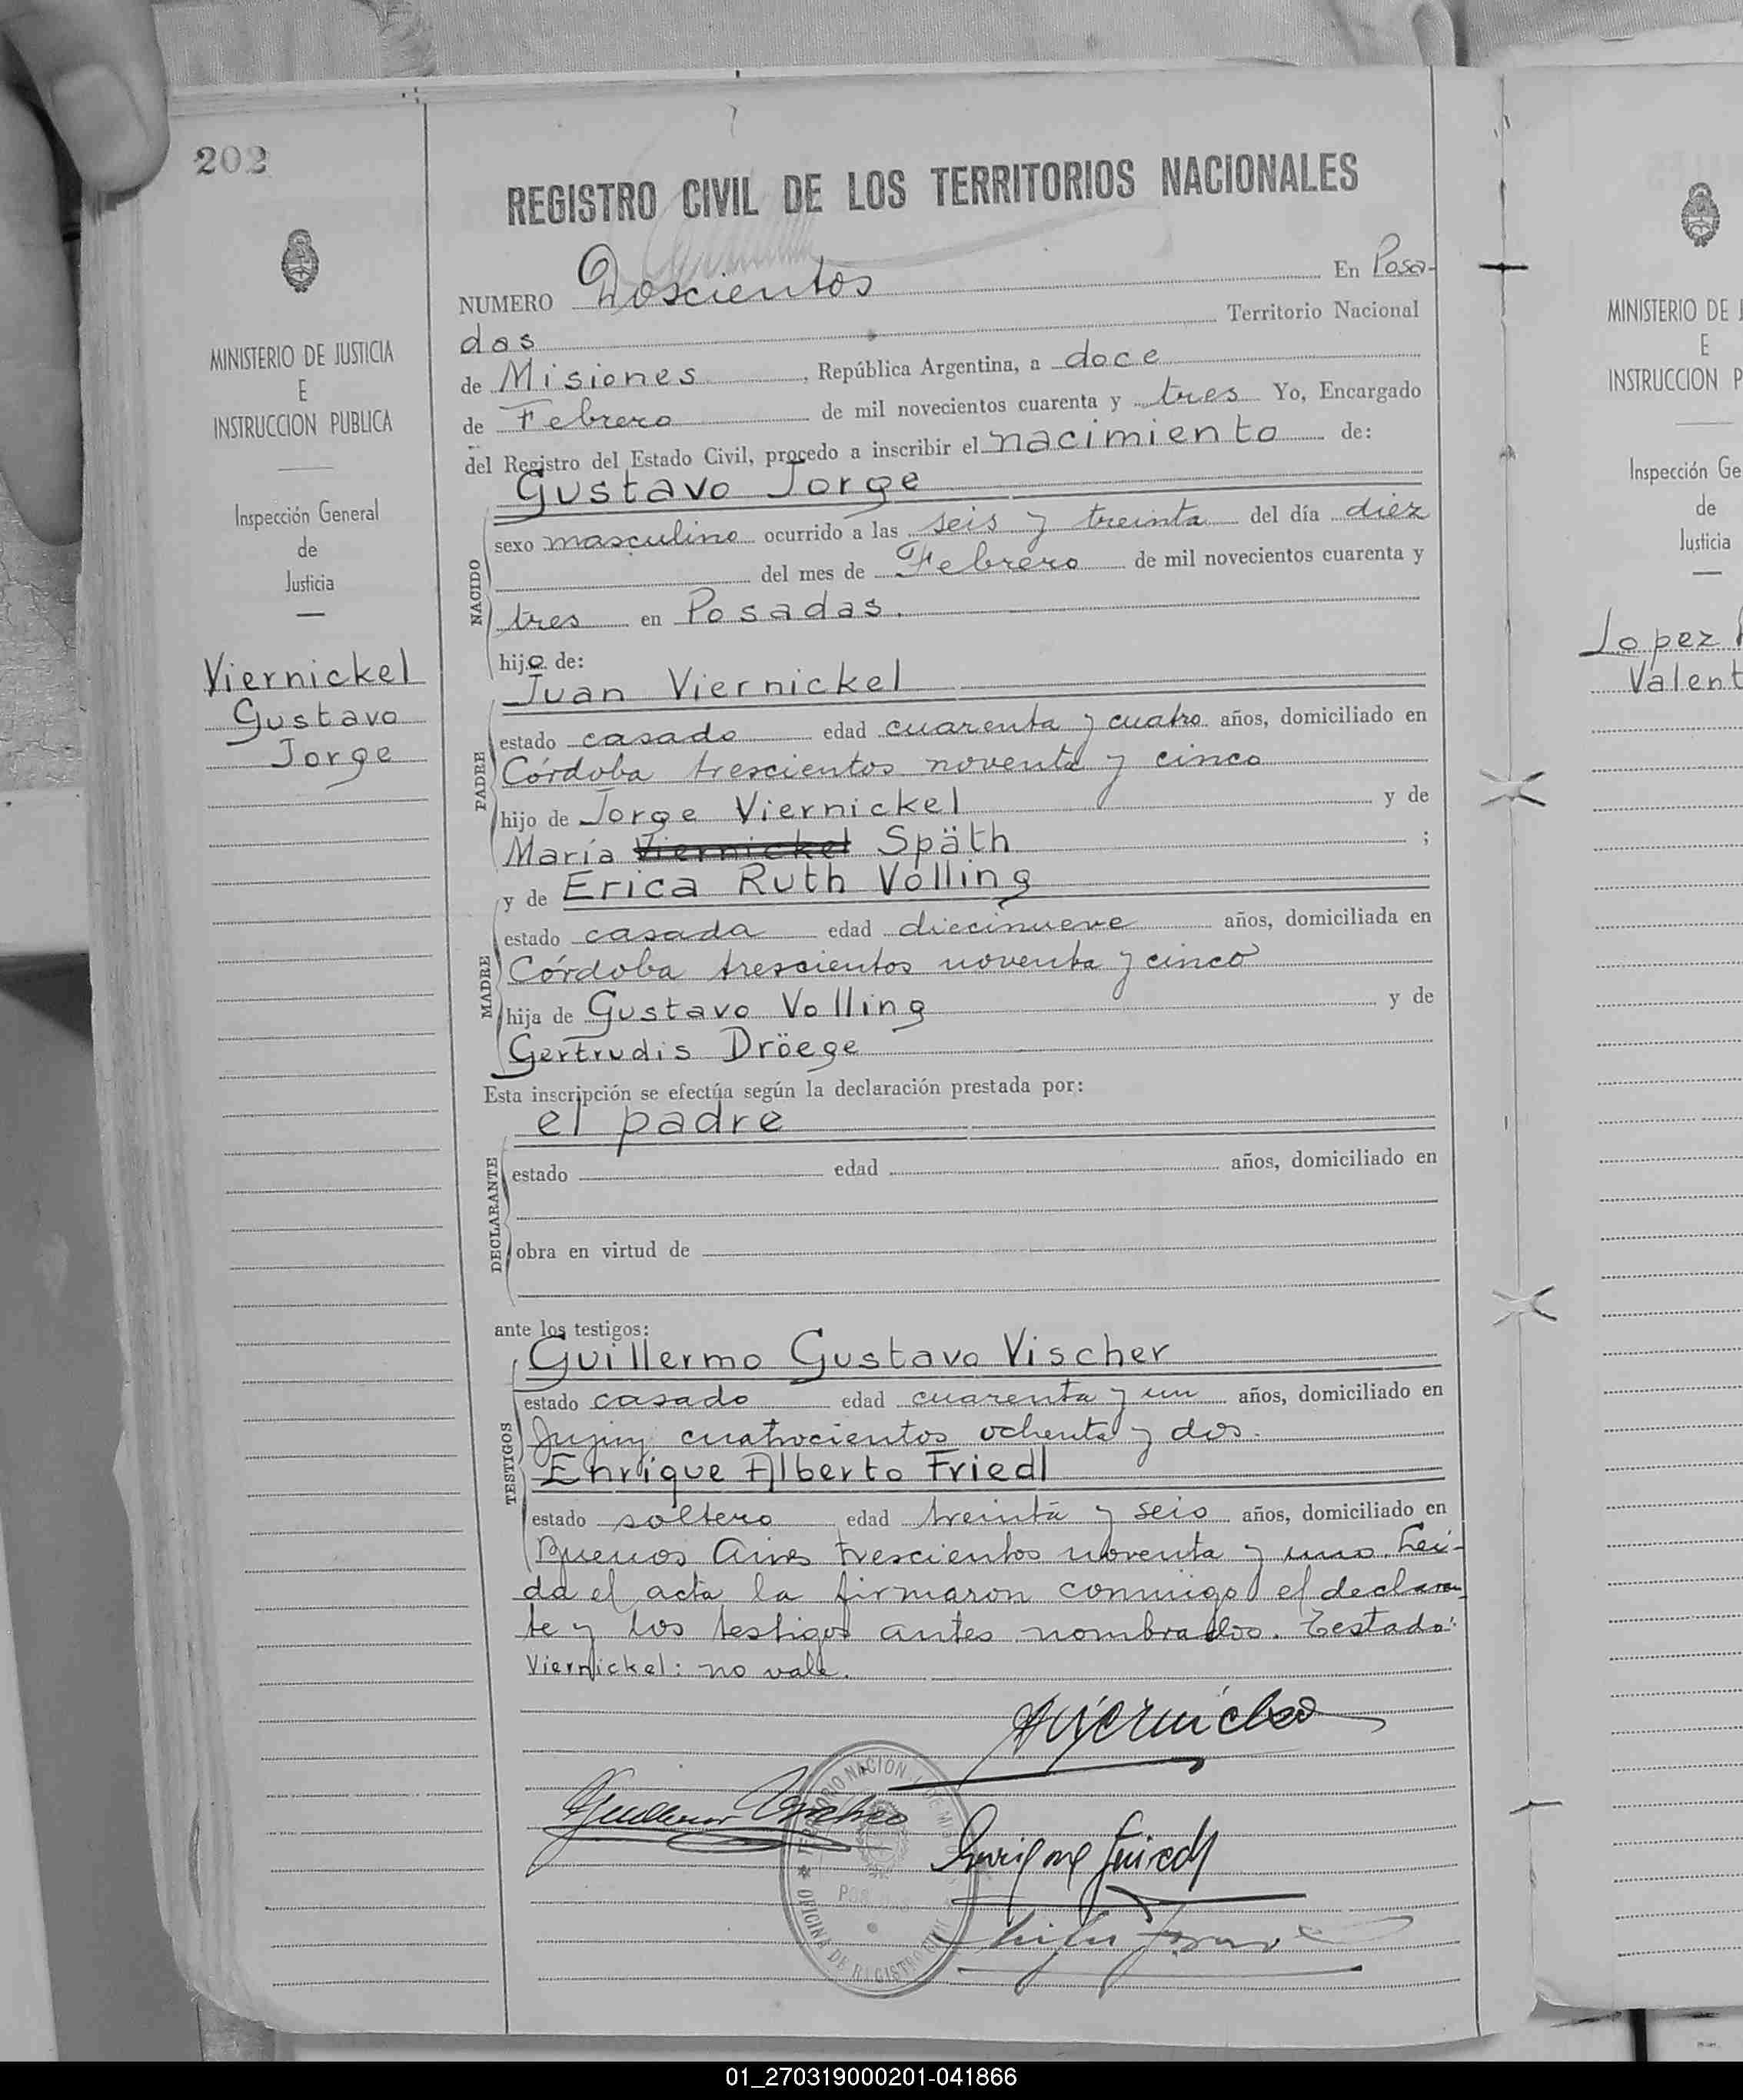 202
REGISTRO CIVIL DE LOS TERRITORIOS NACIONALES
NUMERO Doscientos En Posa-
das Territorio Nacional
de Misiones, República Argentina, a doce
de Febrero de mil novecientos cuarenta y tres Yo, Encargado
del Registro del Estado Civil, procedo a inscribir el nacimiento de:
Gustavo Jorge
NACIDO
sexo masculino ocurrido a las seis y treinta del día diez
del mes de Febrero de mil novecientos cuarenta y
tres en Posadas.
hijo de:
Juan Viernickel
PADRE
estado casado edad cuarenta y cuatro años, domiciliado en
Córdoba trescientos noventa y cinco
hijo de Jorge Viernickel y de
María Viernickel Späth ;
y de Erica Ruth Völling
MADRE
estado casada edad diecinueve años, domiciliada en
Córdoba trescientos noventa y cinco
hija de Gustavo Volling y de
Gertrudis Dröege
Esta inscripción se efectúa según la declaración prestada por:
el padre
DECLARANTE
estado edad años, domiciliado en
obra en virtud de
ante los testigos:
Guillermo Gustavo Vischer
TESTIGOS
estado casado edad cuarenta y un años, domiciliado en
Jujuy cuatrocientos ochenta y dos.
Enrique Alberto Friedl
estado soltero edad treinta y seis años, domiciliado en
Buenos Aires trescientos noventa y uno. Leí-
da el acta la firmaron conmigo el declaran-
te y los testigos antes nombrados. Testado:
Viernickel: no vale.
Viernickel
Guillermo Vischer
Enrique Friedl
TERRITORIO NACIONAL DE MISIONES
POSADAS
OFICINA DE REGISTRO CIVIL
MINISTERIO DE JUSTICIA
E
INSTRUCCION PUBLICA
Inspección General
de
Justicia
Viernickel
Gustavo
Jorge
MINISTERIO DE J
E
INSTRUCCION P
Inspección Ge
de
Justicia
Lopez
Valent
01_270319000201-041866